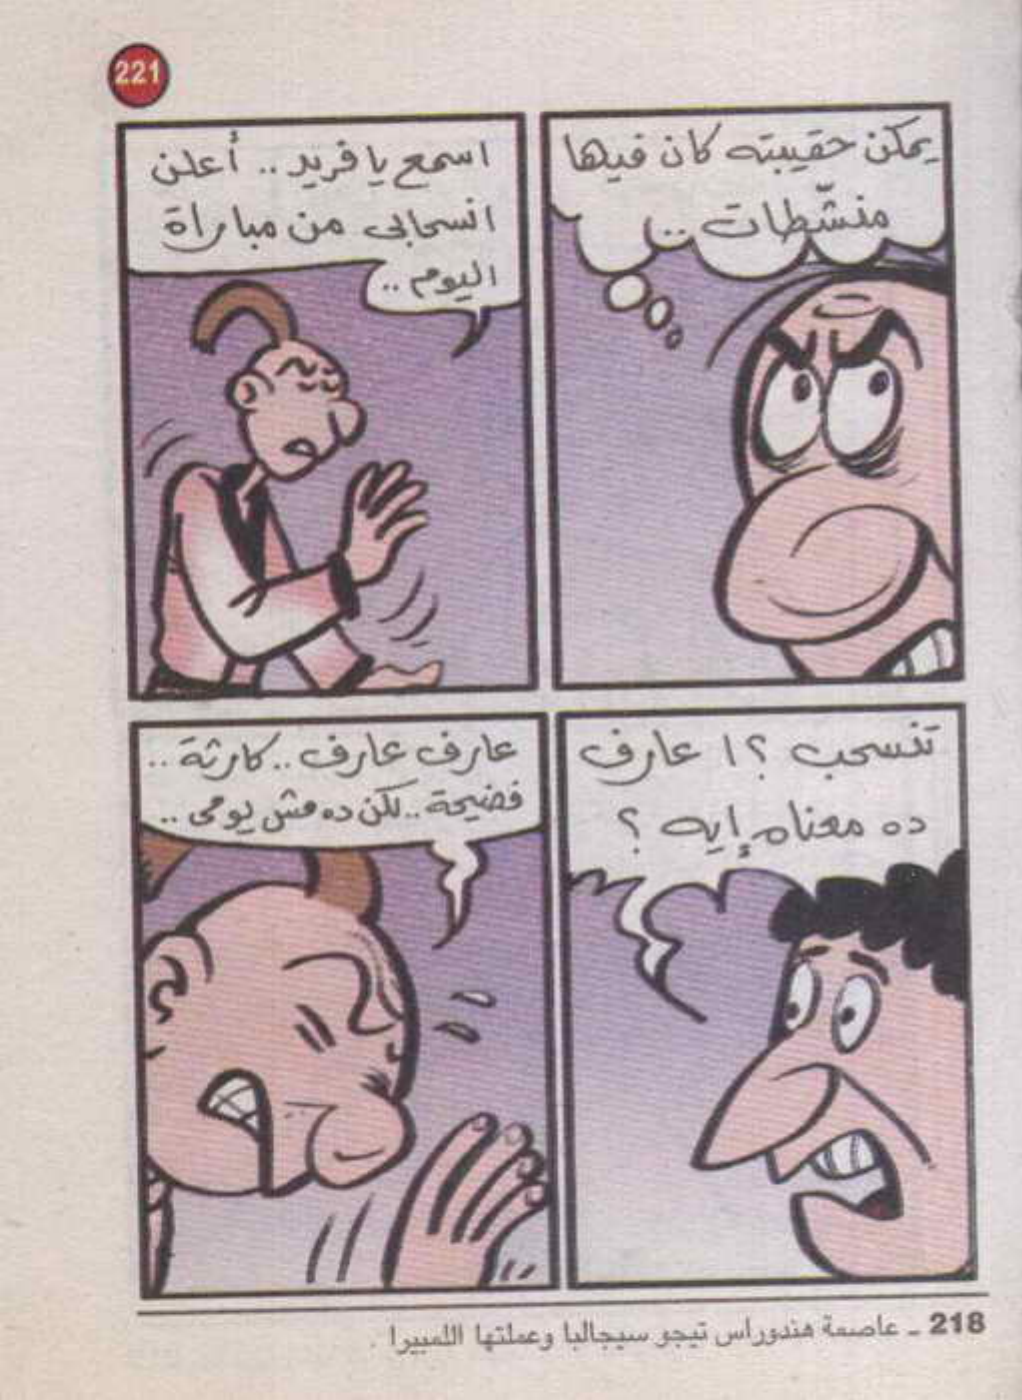 221
يمكن حقيبته كان فيها
منشّطات ..
اسمع يا فريد .. أعلن
انسحابى من مباراة
اليوم ..
تنسحب ؟! عارف
ده معناه إيه ؟
عارف عارف .. كارثة ..
فضيحة .. لكن ده مش يومى ..
218 ـ عاصمة هندوراس تيجو سيجالبا وعملتها اللمبيرا .